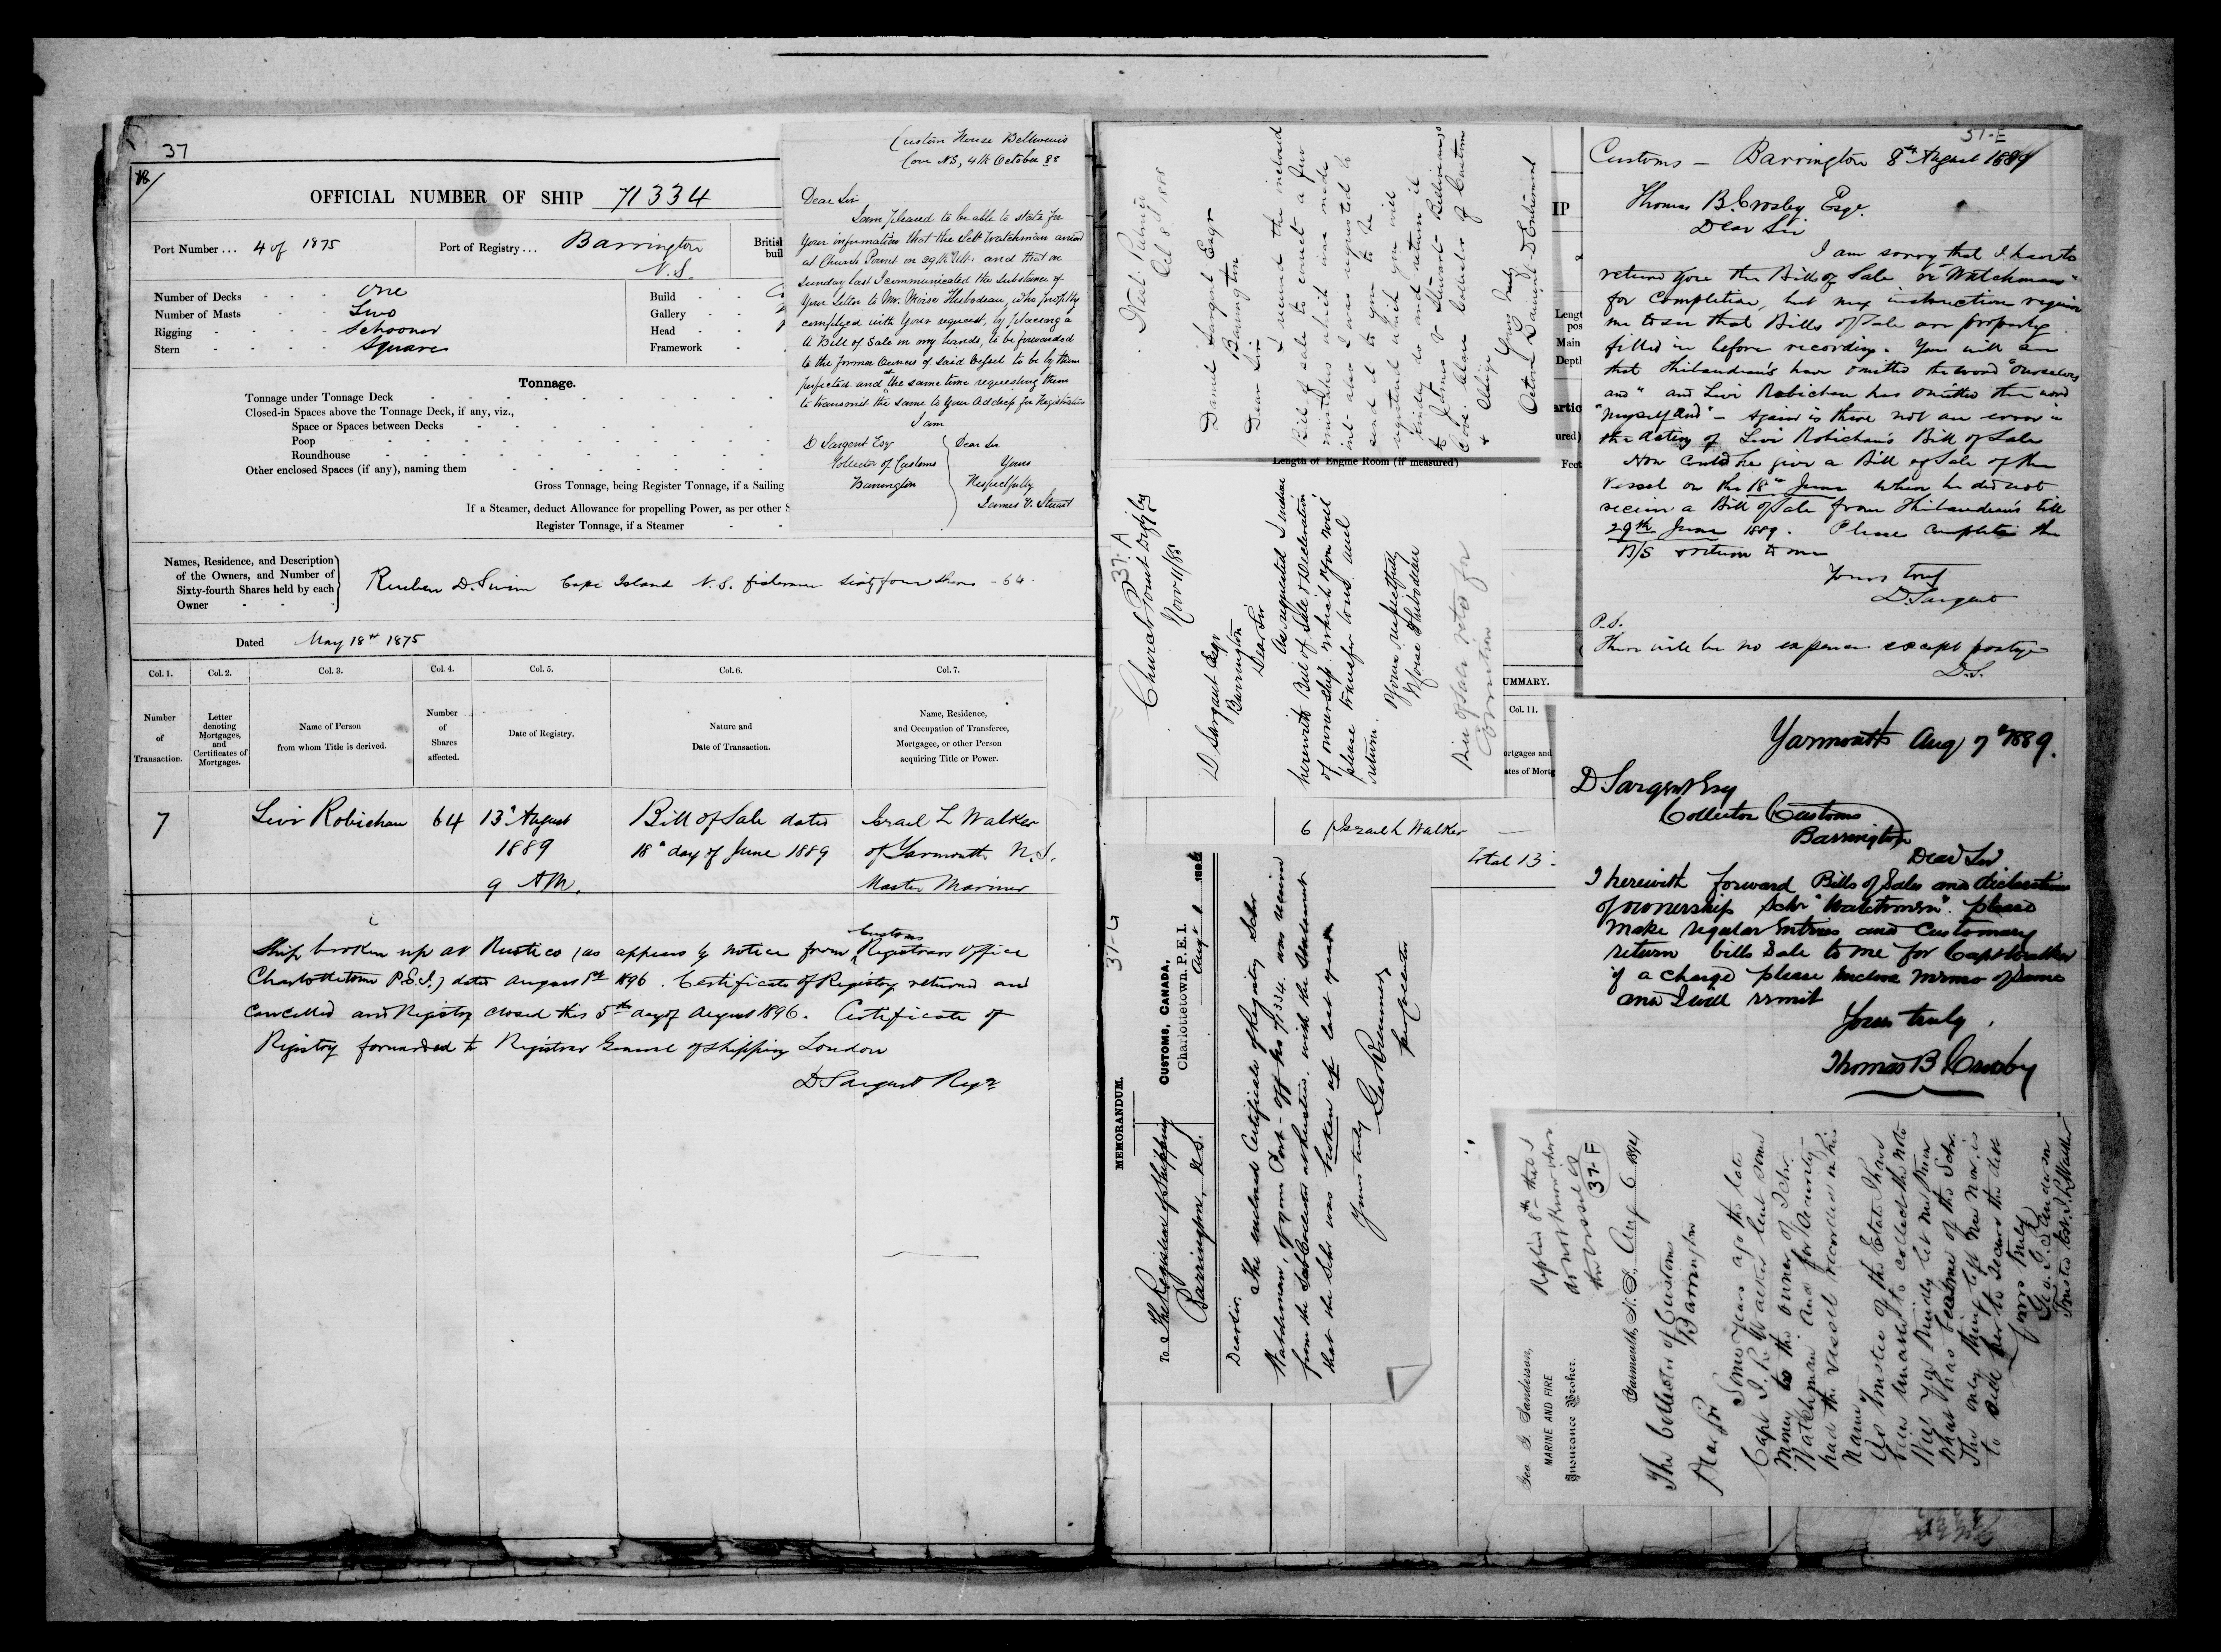 37
OFFICIAL NUMBER OF SHIP 71334
Port Number... 4 of 1875
Port of Registry... Barrington
N.S.
British
buil
Number of Decks - - - one
Number of Masts - - - Two
Rigging - - - - Schooner
Stern - - - - Square
Build
Gallery
Head
Framework
Tonnage.
Tonnage under Tonnage Deck
Closed-in Spaces above the Tonnage Deck, if any, viz.,
Space or Spaces between Decks
Poop
Roundhouse
Other enclosed Spaces (if any), naming them
Gross Tonnage, being Register Tonnage, if a Sailing
If a Steamer, deduct Allowance for propelling Power, as per other S
Register Tonnage, if a Steamer
Names, Residence, and Description
of the Owners, and Number of
Sixty-fourth Shares held by each
Owner
Reuben D. Swim Cape Island N.S. fisherman sixty four shares - 64
Dated May 18th 1875
Col. 1. Col. 2. Col. 3. Col. 4. Col. 5. Col. 6. Col. 7.
Number of Transaction.
Letter denoting Mortgages, and Certificates of Mortgages.
Name of Person from whom Title is derived.
Number of Shares affected.
Date of Registry.
Nature and Date of Transaction.
Name, Residence, and Occupation of Transferee, Mortgagee, or other Person acquiring Title or Power.
7 Levi Robichau 64 13th August Bill of Sale dated Israel L Walker
1889 18th day of June 1889 of Yarmouth N.S.
9 AM. Master Mariner
Ship broken up at Rustico (as appears by notice from Customs Registrars Office
Charlottetown P.E.I.) dated August 1st 1896. Certificate of Registry returned and
cancelled and Registry closed this 5th day of August 1896. Certificate of
Registry forwarded to Registrar General of Shipping London
D Sargent Regr
Custom House Belliveau's
Cove NS, 4th October 88
Dear Sir
I am pleased to be able to state for
Your information that the Schr Watchman arrived
at Church Point on 29th Ult. and that on
Sunday last I communicated the Substance of
Your Letter to Mr. Moise Thibodeau, who promptly
complyed with Your request, by placing a
A Bill of Sale in my hands, to be forwarded
to the former Owners of Said Vessel to be by them
perfected and at the same time requesting them
to transmit the same to Your Address for Registration
I am
D Sargent Esq
Collector of Customs
Barrington
Dear Sir
Yours
Respectfully
James V. Stuart
West Pubnico
Oct 8th 1888
Daniel Sargent Esqr
Barrington
Dear Sir
I remit the inclosed
Bill of sale to correct a few
mistakes which was made
in it also I was requested to
send it to you to be
registered which you will
kindly do and return it
to James V Stewart Belliveau's
Cove. Clare Collector of Custom
& Oblige Yours Truly
Length of Engine Room (if measured)
37. A
Church Point Digby Co
Novr 11/88
D Sargent Esqr
Barrington
Dear Sir
As requested I inclose
herewith Bill of Sale & Declaration
of ownership which you will
please transfer book and
return.
Yours respectfully
Moise Thibodeau
Bill of Sale retd for
Correction
IP
Lengt
Main
Depth
Feet
UMMARY.
Col. 11.
ortgages and
ates of Mortg
6 Israel L Walker
Total 13
37-G
MEMORANDUM.
CUSTOMS, CANADA,
Charlottetown. P. E. I.
Augt 1 1896
To The Registrar of Shipping
Barrington, N.S.
Dear Sir.
The enclosed Certificate of Registry Schr
Watchman, of your Port - Off No 71,334. was received
from the Sub Collector at Rustico. with the statement
that the Schr was broken up last year
Yours truly
37-E
Customs - Barrington 8th August 1889
Thomas B. Crosby Esqr.
Dear Sir
I am sorry that I have to
return you the Bill of Sale re "Watchman"
for completion, but my instruction require
me to see that Bills of Sale are properly
filled in before recording. You will see
that Thibaudeau's have omitted the word "Ourselves
and" and Levi Robichau has omitted the word
"Myself and" - Again is there not an error in
the dating of Levi Robichau's Bill of Sale
How could he give a Bill of Sale of the
vessel on the 18th June when he did not
receive a Bill of Sale from Thibaudeau's till
29th June 1889. Please complete the
B/S & return to me
Yours truly
D. Sargent
P.S.
There will be no expense except postage
D.S.
Yarmouth Aug 7th 1889.
D Sargent Esq
Collector Customs
Barrington
Dear Sir
I herewith forward Bills of Sales and declaration
of ownership Schr "Watchman". please
make regular Entries and Customary
return bills Sale to me for Capt Walker
if a charge please enclose memo of same
and I will remit
Yours truly,
Thomas B Crosby
Replied 8th that I
do not know where
the vessel is
37-F
Geo. G. Sanderson,
MARINE AND FIRE
Insurance Broker.
Yarmouth, N.S., Aug 6 1894
The Collector of Customs
Barrington
Dear Sir
Some years ago the late
Capt I. L. Walker lent some
money to the owner of Schr.
Watchman and for security
had the vessel recorded in his
name.
As trustee of the Estate I have
been unable to collect the note
Will you kindly let me know
what has become of the Schr.
The only thing left me now is
to sell her to secure the debt
Yours truly
Geo. G. Sanderson
Trustee Est. I. L. Walker